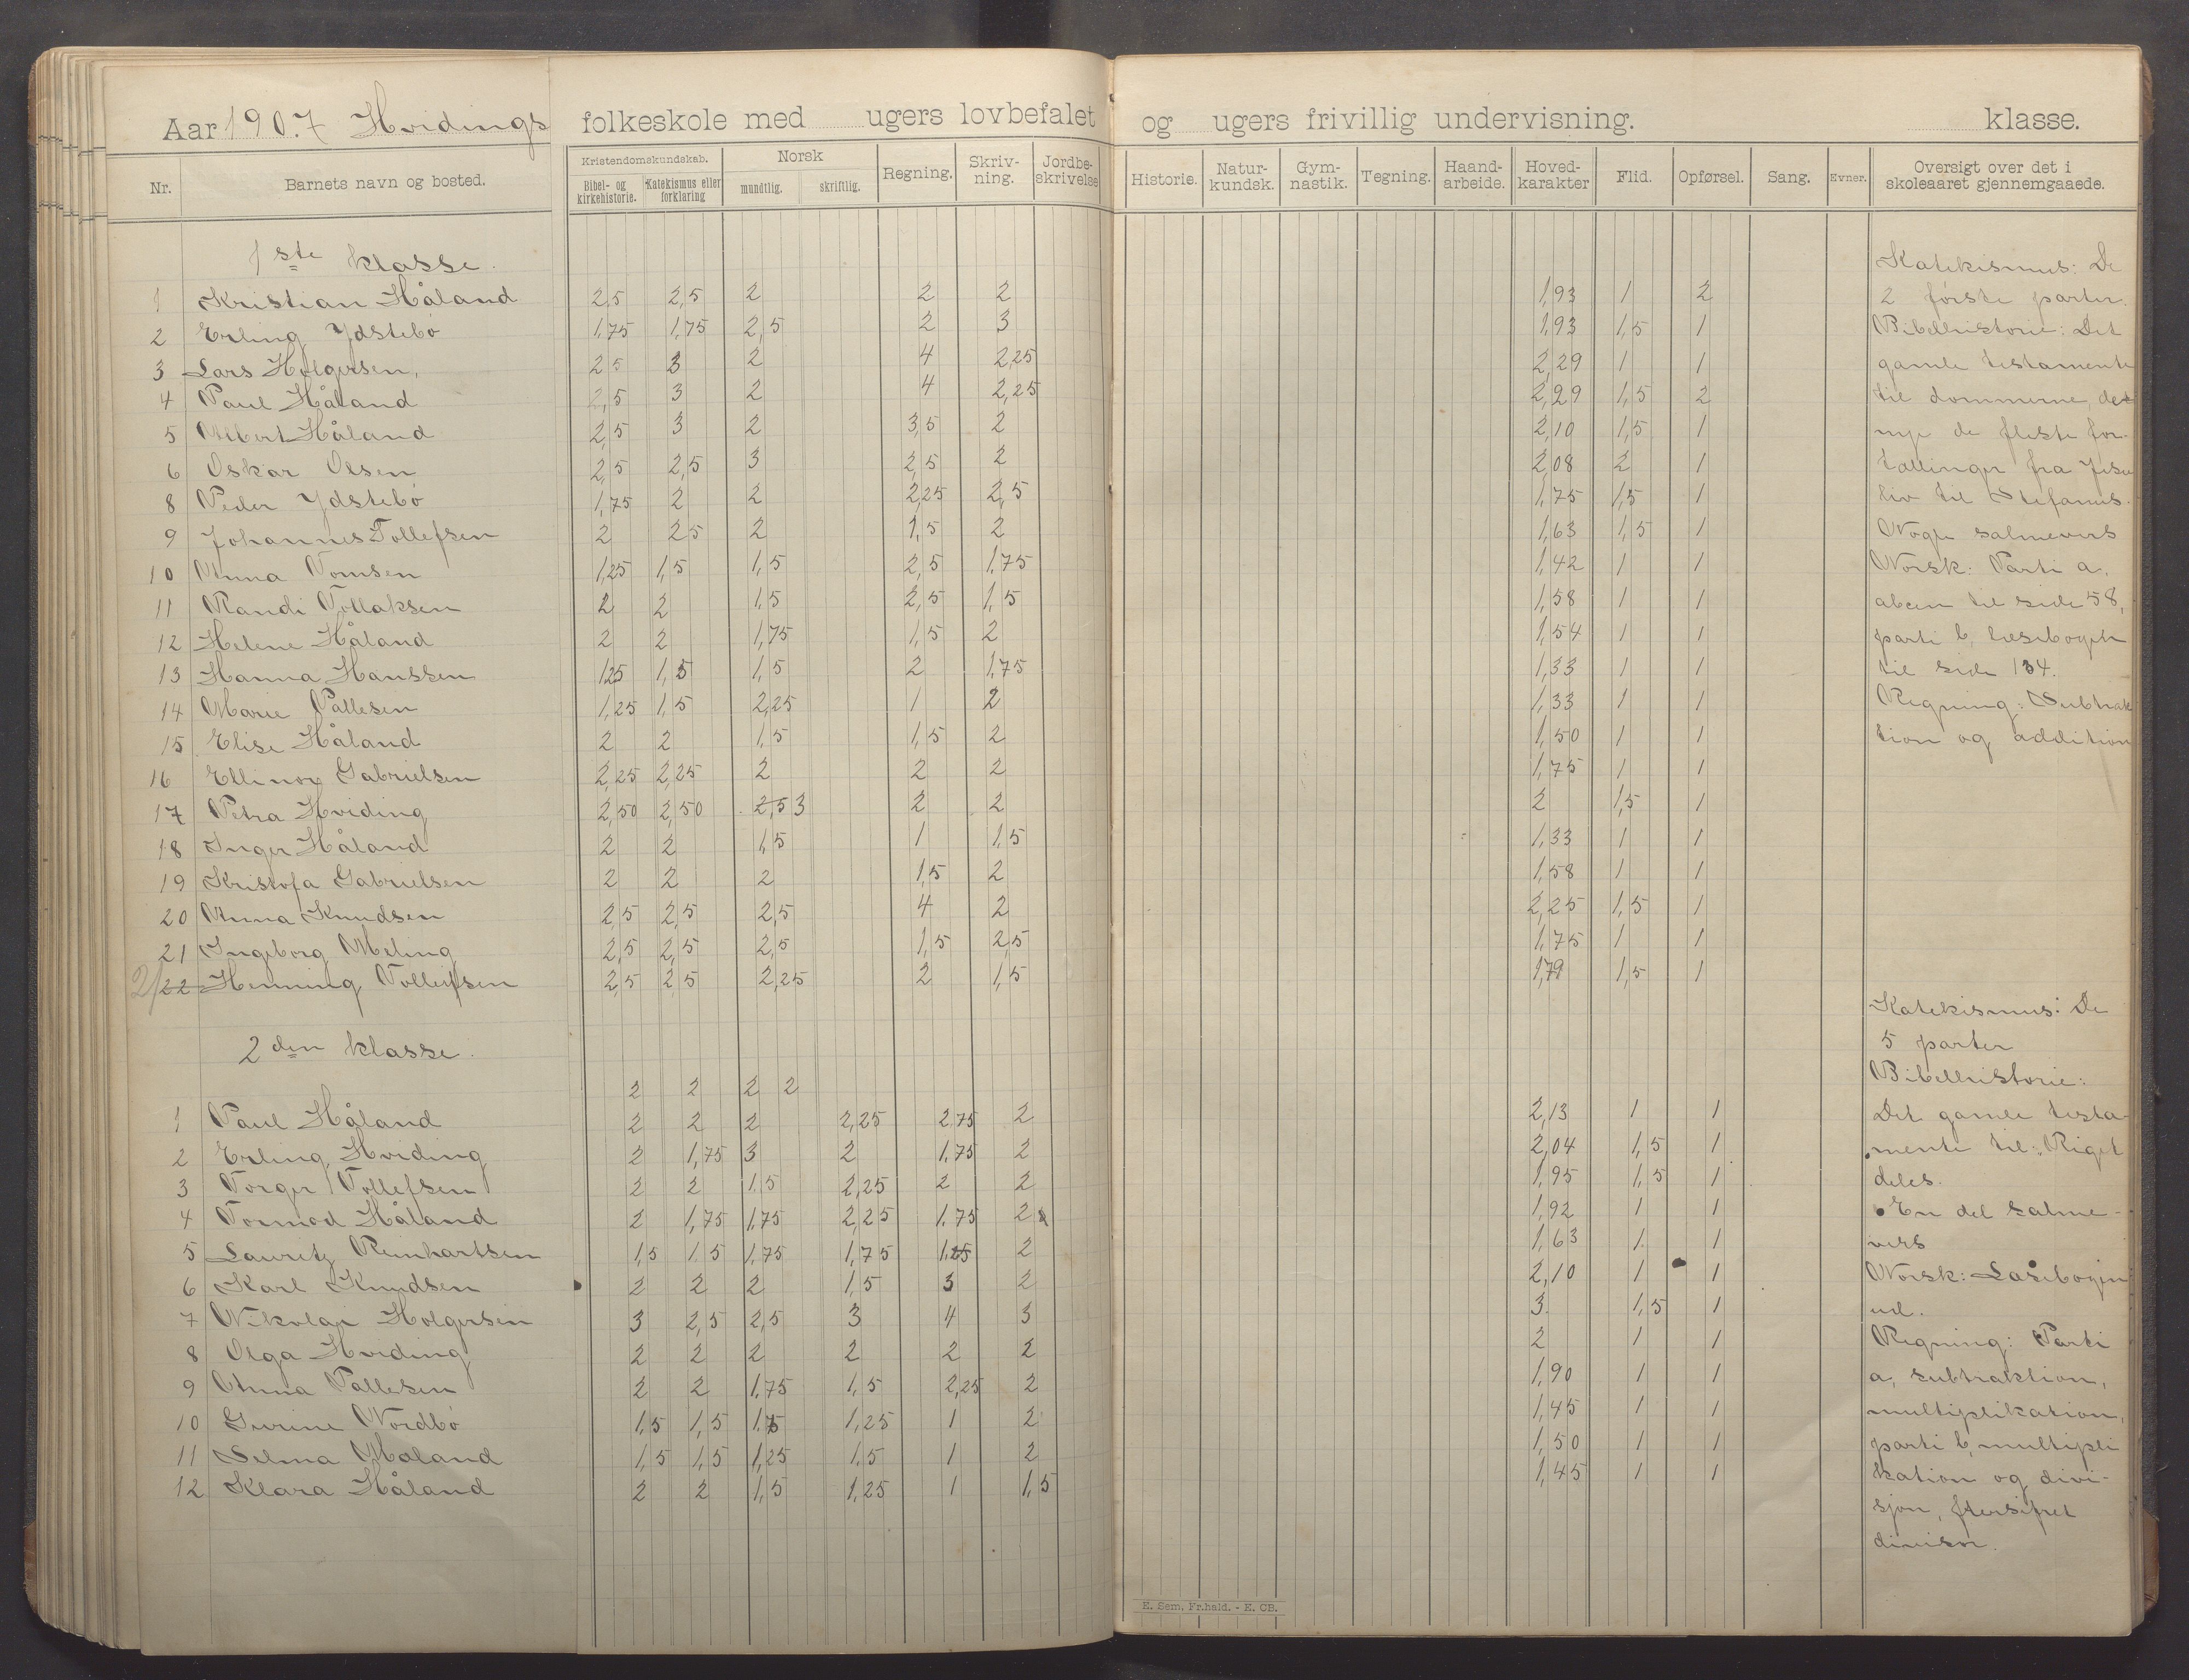 Aar 1907 Hvidings folkeskole med ugers lovbefalet og ugers frivillig undervisning. klasse.
Nr. Barnets navn og bosted. Kristendomskundskab. Bibel- og kirkehistorie. Katekismus eller forklaring Norsk mundtlig. skriftlig. Regning. Skriv-ning. Jordbe-skrivelse Historie. Natur-kundsk. Gym-nastik. Tegning. Haand-arbeide. Hoved-karakter Flid. Opførsel. Sang. Evner. Oversigt over det i skoleaaret gjennemgaaede.
1ste klasse.
1 Kristian Håland 2,5 2,5 2 2 2 1,93 1 2
2 Erling Ydstebø 1,75 1,75 2,5 2 3 1,93 1,5 1
3 Lars Holgersen, 2 5 3 2 4 2,25 2,29 1 1
4 Paul Håland 2,5 3 2 4 2,25 2,29 1,5 2
5 Albert Håland 2,5 3 2 3,5 2 2,10 1,5 1
6 Oskar Olsen 2,5 2,5 3 2,5 2 2,08 2 1
8 Peder Ydstebø 1,75 2 2 2,25 2,5 1,75 1,5 1
9 Johannes Tollefsen 2 2 5 2 1,5 2 1,63 1,5 1
10 Anna Tomsen 1,25 1,5 1,5 2,5 1,75 1,42 1 1
11 Randi Tollaksen 2 2 1,5 2,5 1,5 1,58 1 1
12 Helene Håland 2 2 1,75 1,5 2 1,54 1 1
13 Hanna Hanssen 1,25 1,5 1,5 2 1,75 1,33 1 1
14 Marie Pallesen 1,25 1,5 2,25 1 2 1,33 1 1
15 Elise Håland 2 2 1,5 1,5 2 1,50 1 1
16 Ellinor Gabrielsen 2,25 2,25 2 2 2 1,75 1 1
17 Petra Hviding 2,50 2,50 2,5 3 2 2 2 1,5 1
18 Inger Håland 2 2 1,5 1 1,5 1,33 1 1
19 Kristofa Gabrielsen 2 2 2 1,5 2 1,58 1 1
20 Anna Knudsen 2,5 2,5 2,5 4 2 2,25 1,5 1
21 Ingeborg Meling 2,5 2,5 2,5 1,5 2,5 1,75 1 1
21 22 Henning Tollefsen 2,5 2 5 2,25 2 1,5 1,79 1,5 1
Katekismus: De
2 første parter.
Bibelhistorie: Det
gamle testamente
til dommerne, det
nye de fleste for-
tællinger fra Jesu
liv til Stefanus.
Nogle salmevers
Norsk: Parti a.
abcen til side 58,
parti b, læsebogen
til side 134.
Regning: Subtrak
tion og addition
2den klasse.
2 2 2 2
1 Paul Håland 2 2 2 2,25 2,75 2 2,13 1 1
2 Erling Hviding 2 1,75 3 2 1,75 2 2,04 1,5 1
3 Torger Tollefsen 2 2 1,5 2,25 2 2 1,95 1,5 1
4 Tormod Håland 2 1,75 1,75 2,25 1,75 2 1,92 1 1
5 Lauritz Reinhartsen 1,5 1 5 1,75 1,75 1,25 2 1,63 1 1
6 Karl Knudsen 2 2 2 1,5 3 2 2,10 1 1
7 Nikolai Holgersen 3 2,5 2,5 3 4 3 3 1,5 1
8 Olga Hviding 2 2 2 2 2 2 2 1 1
9 Anna Pallesen 2 2 1,75 1,5 2,25 2 1,90 1 1
10 Gurine Nordbø 1,5 1,5 1,5 1,25 1 2 1,45 1 1
11 Selma Håland 1,5 1,5 1,25 1,5 1 2 1,50 1 1
12 Klara Håland 2 2 1,5 1,25 1 1,5 1,45 1 1
Katekismus: De
5 parter
Bibelhistorie:
Det gamle testa-
mente til: Riget
deles.
En del salme-
vers
Norsk: Læsebogen
ud.
Regning: Parti
a, subtraktion,
multiplikation,
parti b, multipli
kation og divi-
sjon, flersifret
divisor.
E. Sem. Fr.hald. - E. CB.